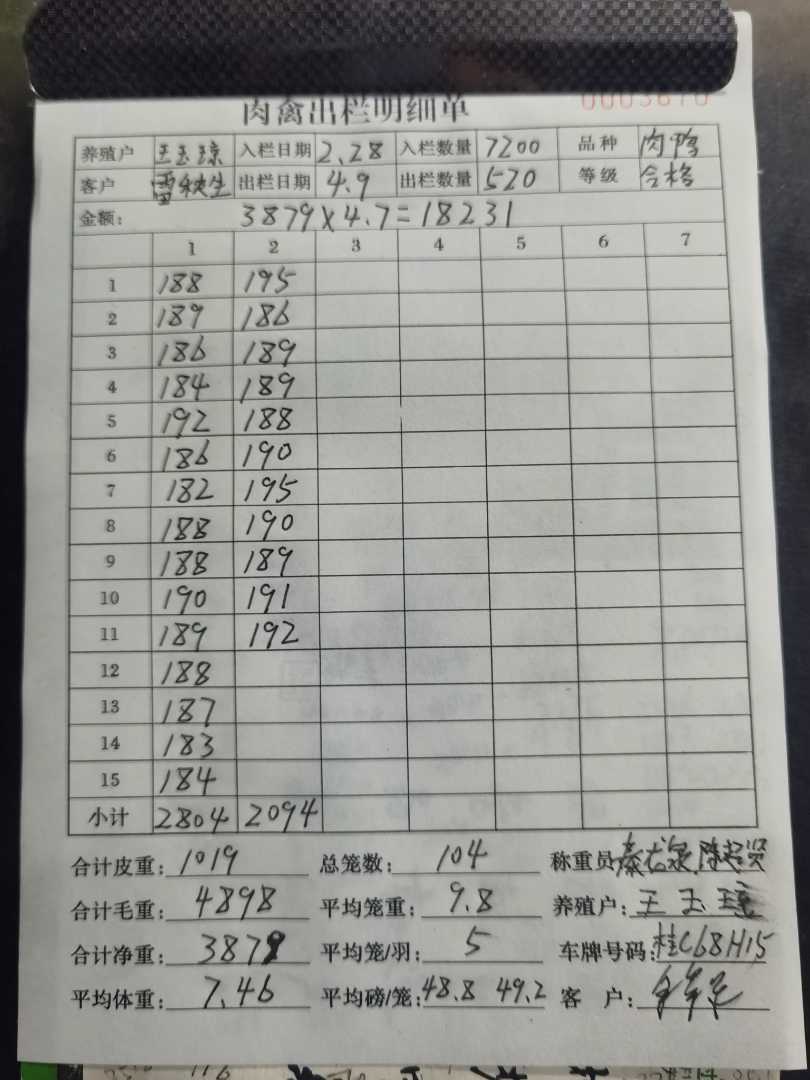 肉禽出栏明细单 0003670
养殖户 王玉琼 入栏日期 2.28 入栏数量 7200 品种 肉鸭
客户 雷秧生 出栏日期 4.9 出栏数量 520 等级 合格
金额: 3879×4.7=18231
1 2 3 4 5 6 7
1 188 195
2 189 186
3 186 189
4 184 189
5 192 188
6 186 190
7 182 195
8 188 190
9 188 189
10 190 191
11 189 192
12 188
13 187
14 183
15 184
小计 2804 2094
合计皮重: 1019 总笼数: 104 称重员
合计毛重: 4898 平均笼重: 9.8 养殖户: 王玉琼
合计净重: 3879 平均笼/羽: 5 车牌号码: 桂C68H15
平均体重: 7.46 平均磅/笼: 48.8 49.2 客 户: